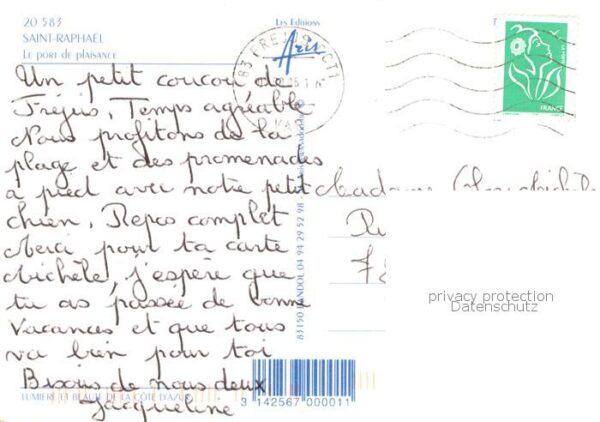 20 583
SAINT-RAPHAËL
Le port de plaisance
Les Editions
Aris
83 FREJUS CCT1
VAR
FRANCE
Un petit coucou de
Fréjus, Temps agréable
Nous profitons de la
plage et des promenades
a pied avec notre petit
chien, Repos complet
Merci pour ta carte
Michèle, j'espère que
tu as passée de bonne
Vacances et que tous
va bien pour toi
Bisous de nous deux
Jacqueline
LUMIERE ET BEAUTE DE LA COTE D'AZUR
83150 BANDOL 04 94 29 52 98
Madame
privacy protection
Datenschutz
3 142567 000011